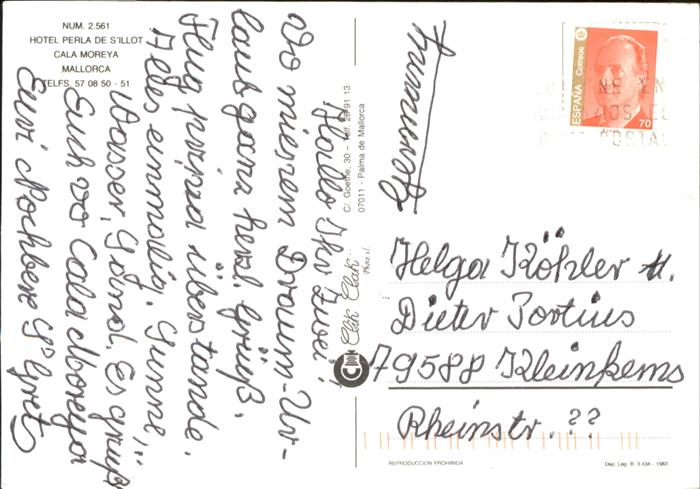 NUM. 2.561
HOTEL PERLA DE S'ILLOT
CALA MOREYA
MALLORCA
TELFS. 57 08 50 - 51
Hallo Ihr Zwei!
Vo miesem Draum-Ur-
laub ganz herzl. Grüß.
Flug prima überstande.
Alles einmalig. Sunne,
Wasser, Gründ. Es grüßt
Euch vo Cala Moreya
Euri Nochbere
Luftpost
Clik Clak
C/. Goethe, 30 – Telf. 28 91 13
07011 - Palma de Mallorca
ESPAÑA Correos
70
Helga Köhler u.
Dieter Portius
79588 Kleinkems
Rheinstr. ??
REPRODUCCION PROHIBIDA
Dep. Leg. B. 3.434 - 1983